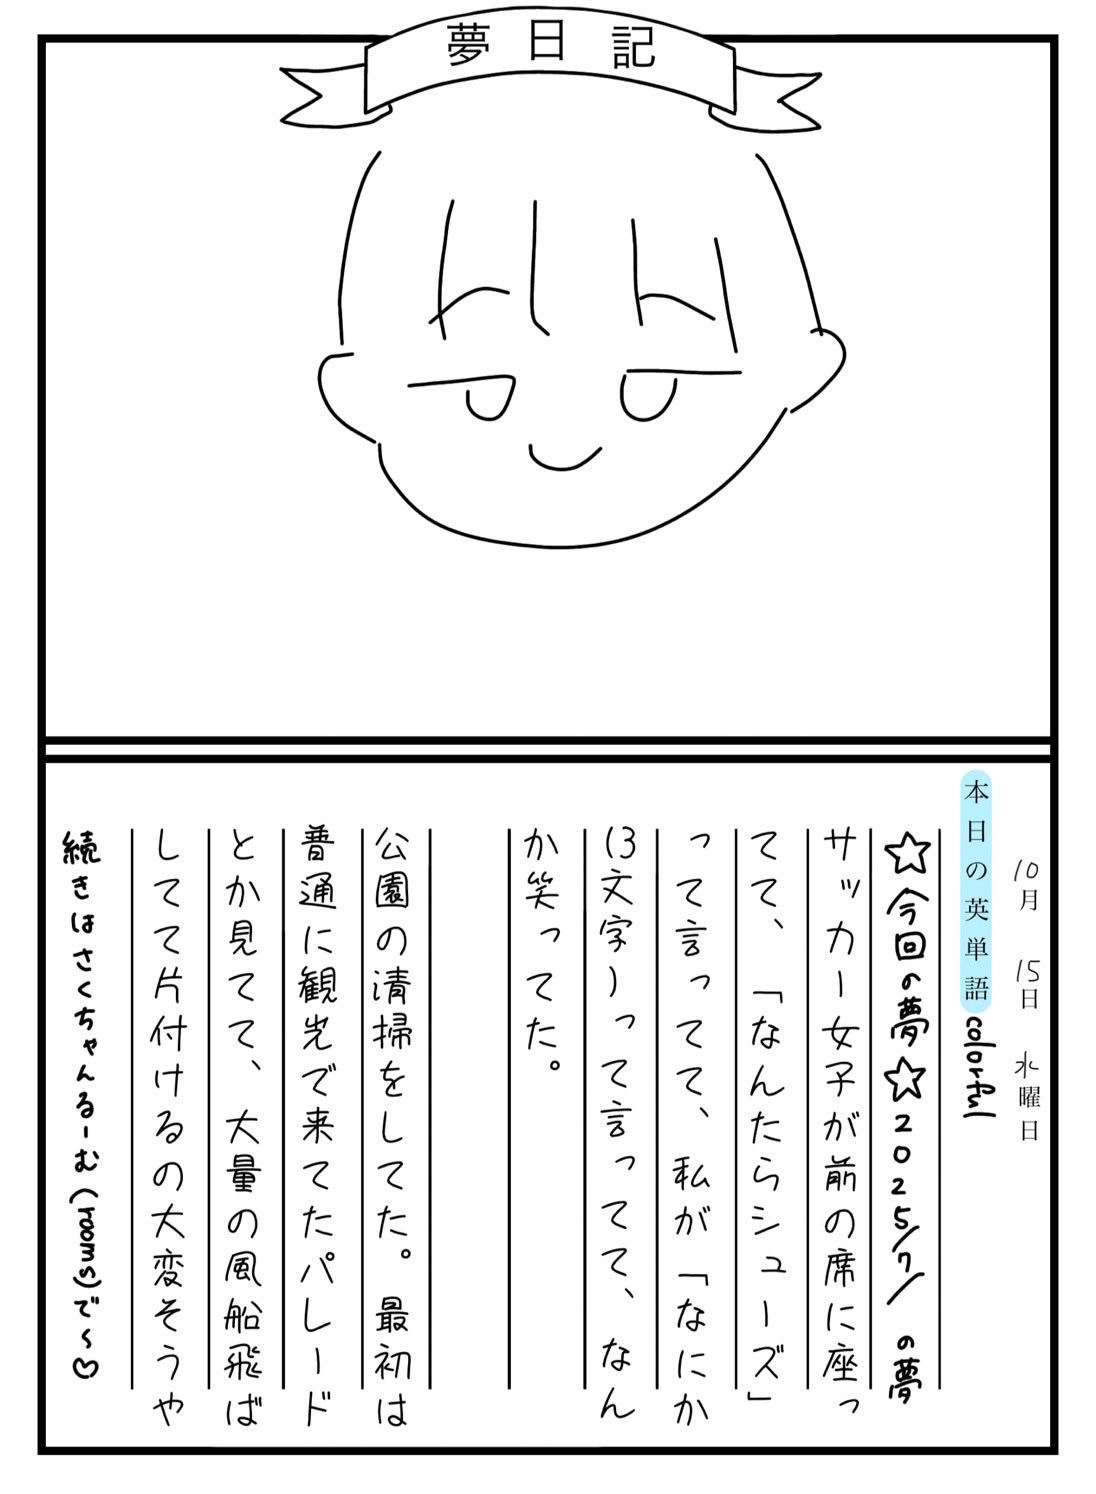 夢日記
10月 15日 水曜日
本日の英単語 colorful
☆今回の夢☆2025/7/ の夢
サッカー女子が前の席に座っ
てて、「なんたらシューズ」
って言ってて、私が「なにか
(3文字)って言ってて、なん
か笑ってた。
公園の清掃をしてた。最初は
普通に観光で来てたパレード
とか見てて、大量の風船飛ば
してて片付けるの大変そうや
続きはさくちゃんるーむ(rooms)で～♡